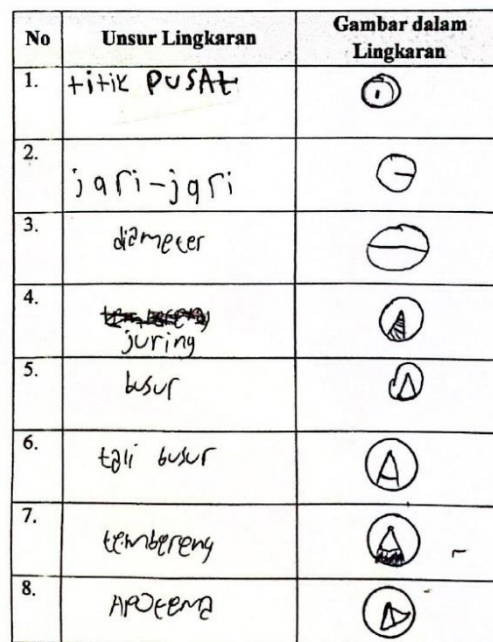 No Unsur Lingkaran Gambar dalam Lingkaran
1. titik PUSAt
2. jari-jari
3. diameter
4. juring
5. busur
6. tali busur
7. tembereng
8. APOtema